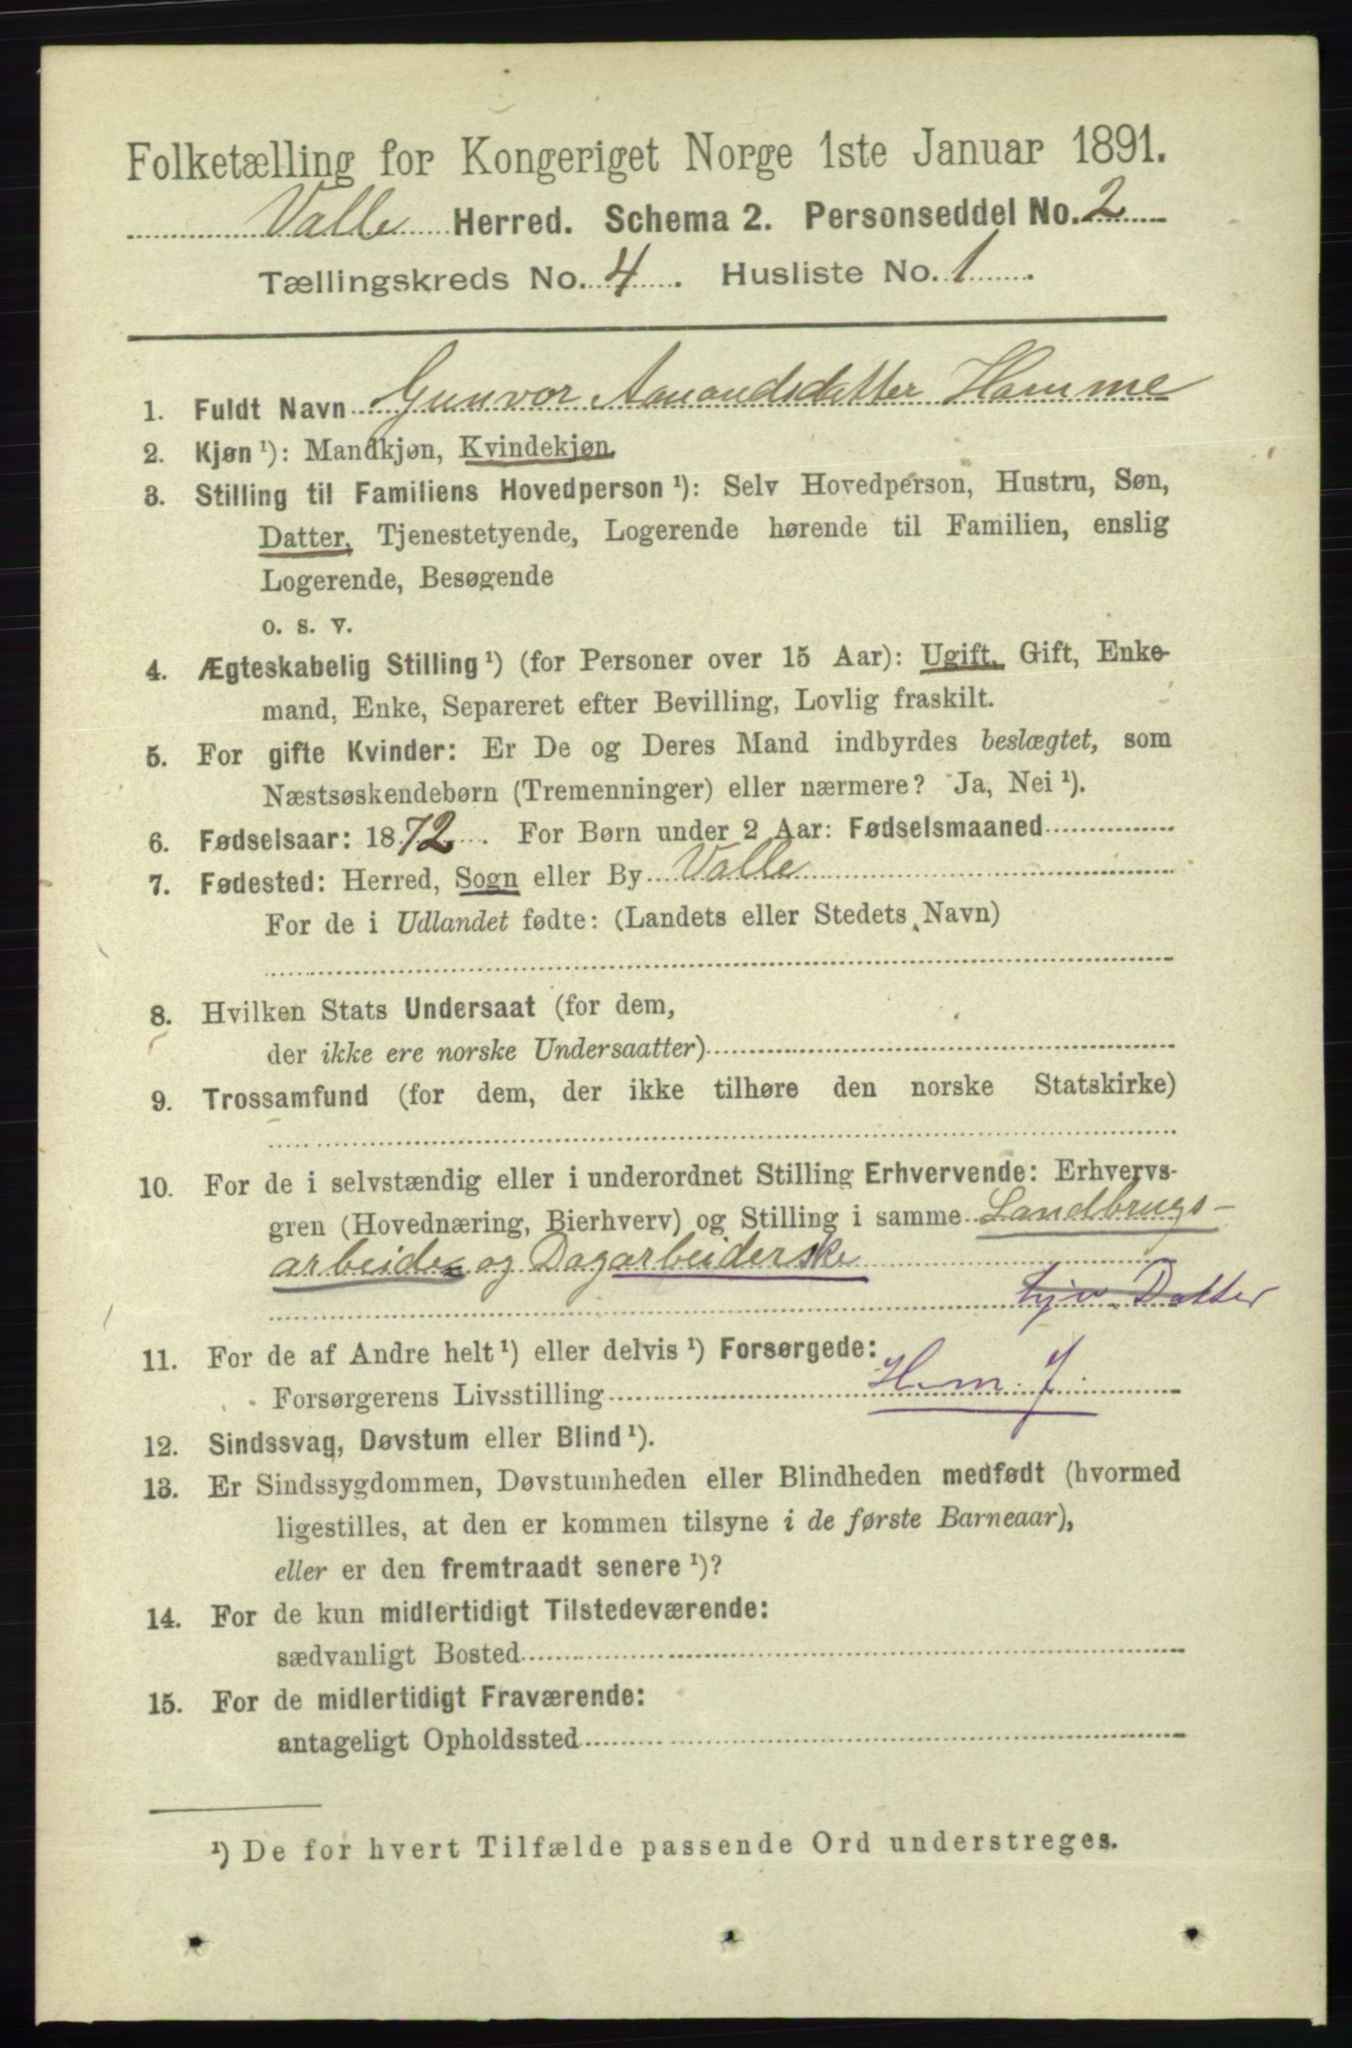 Folketælling for Kongeriget Norge 1ste Januar 1891.
Valle Herred. Schema 2. Personseddel No. 2
Tællingskreds No. 4. Husliste No. 1
1. Fuldt Navn Gunvor Aanondsdatter Homme
2. Kjøn ¹): Mandkjøn, Kvindekjøn.
3. Stilling til Familiens Hovedperson ¹): Selv Hovedperson, Hustru, Søn,
Datter, Tjenestetyende, Logerende hørende til Familien, enslig
Logerende, Besøgende
o. s. v.
4. Ægteskabelig Stilling ¹) (for Personer over 15 Aar): Ugift, Gift, Enke-
mand, Enke, Separeret efter Bevilling, Lovlig fraskilt.
5. For gifte Kvinder: Er De og Deres Mand indbyrdes beslægtet, som
Næstsøskendebørn (Tremenninger) eller nærmere? Ja, Nei ¹).
6. Fødselsaar: 1872. For Børn under 2 Aar: Fødselsmaaned
7. Fødested: Herred, Sogn eller By Valle
For de i Udlandet fødte: (Landets eller Stedets Navn)
8. Hvilken Stats Undersaat (for dem,
der ikke ere norske Undersaatter)
9. Trossamfund (for dem, der ikke tilhøre den norske Statskirke)
10. For de i selvstændig eller i underordnet Stilling Erhvervende: Erhvervs-
gren (Hovednæring, Bierhverv) og Stilling i samme Landbrugs-
arbeide og Dagarbeiderske
tjv. Datter
11. For de af Andre helt ¹) eller delvis ¹) Forsørgede:
Forsørgerens Livsstilling H. m. f.
12. Sindssvag, Døvstum eller Blind ¹).
13. Er Sindssygdommen, Døvstumheden eller Blindheden medfødt (hvormed
ligestilles, at den er kommen tilsyne i de første Barneaar),
eller er den fremtraadt senere ¹)?
14. For de kun midlertidigt Tilstedeværende:
sædvanligt Bosted
15. For de midlertidigt Fraværende:
antageligt Opholdssted
¹) De for hvert Tilfælde passende Ord understreges.